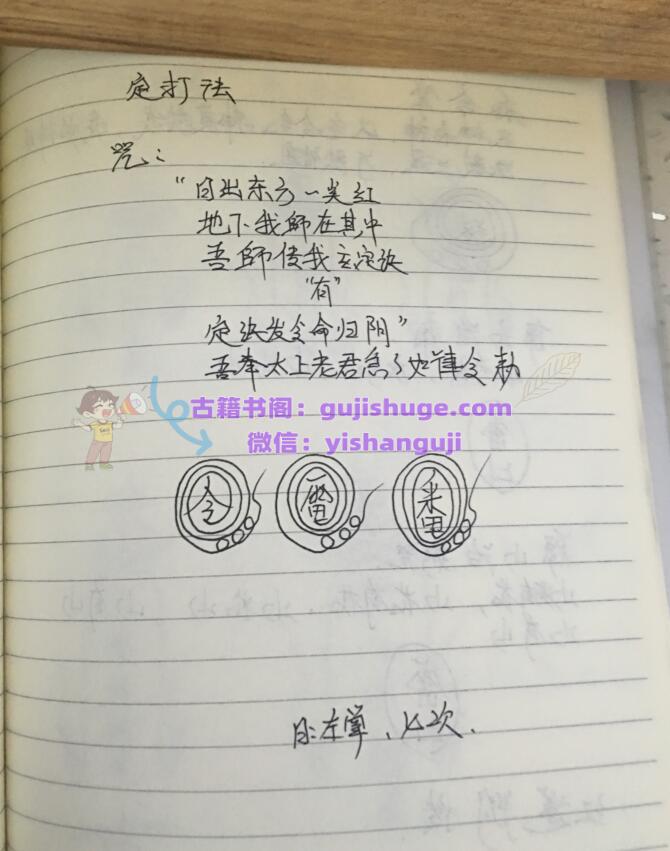 定打法
咒：
“日出东方一点红
地下我師在其中
吾師传我
“有”
定法发令命归阴”
吾奉太上老君急々如律令勅
古籍书阁：gujishuge.com
微信：yishanguji
令
左掌、七次.